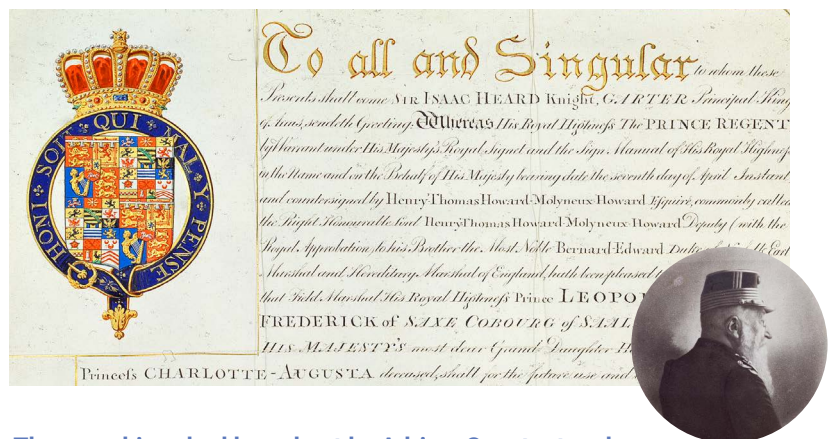 HONI SOIT QUI MAL Y PENSE
To all and Singular to whom these
Presents shall come Sir ISAAC HEARD Knight, GARTER Principal King
of Arms, sendeth Greeting. Whereas His Royal Highness The PRINCE REGENT
by Warrant under His Majesty's Royal Signet and the Sign Manual of His Royal Highness
in the Name and on the Behalf of His Majesty bearing date the seventh day of April Instant
and countersigned by Henry-Thomas Howard-Molyneux-Howard Esquire, commonly called
the Right Honourable Lord Henry Thomas Howard-Molyneux-Howard Deputy (with the
Royal Approbation) to his Brother the Most Noble Bernard-Edward Duke of Earl
Marshal and Hereditary Marshal of England, hath been pleased
that Field Marshal His Royal Highness Prince LEOPO
FREDERICK of SAXE COBOURG of SAAL
HIS MAJESTY'S most dear Grand Daughter H
Princess CHARLOTTE-AUGUSTA deceased, shall for the future use and